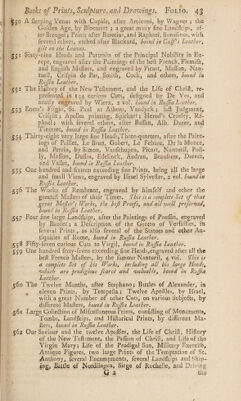 Books of Prints, Sculpture, and Drawings. FOLIO. 43
550 A sleeping Venus with Cupids, after Antonio, by Wagner; the
Golden Age, by Blocacer; a great many fine Landskips, af-
ter Stenger; Prints after Bassetan, and Raphael, Burnisteus, with
several others, etched after Blackard, bound in Calf's Leather,
gilt on the Leaves.
551 Sixty-nine Heads and Portraits of the Principal Nobility in Eu-
rope, engraved after the Paintings of the best French, Flemish,
and English Masters, and engraved by Picart, Masson, Nan-
tueil, Crispin de Pas, Smith, Cock, and others, bound in
Russia Leather.
552 The History of the New Testament, and the Life of Christ, re-
presented in 152 curious Cuts, designed by De Vos, and
neatly engraved by Wierx, 2 vol. bound in Russia Leather.
553 Rosa's Fight, St. Paul at Athens, Vandyck; last Judgment,
Crispin; Apelles painting, Spickart; Herod's Cruelty, Ra-
phael; with several others, after Bassan, Alb. Durer, and
Tintoret, bound in Russia Leather.
554 Thirty-eight very large fine Heads, Three-quarters, after the Paint-
ings of Paillet, Le Brun, Gober, Le Febure, De la Monce,
and Perrin, by Simon, Vanschuppen, Picart, Nantueil, Poil-
ly, Masson, Dufios, Edelinck, Audran, Beaubrun, Drevet,
and Vallet, bound in Russia Leather.
555 One hundred and sixteen exceeding fine Prints, being all the large
and small Views, engraved by Israel Sylvester, 2 vol. bound in
Russia Leather.
556 The Works of Rembrant, engraved by himself and other the
greatest Masters of their Times. This is a complete Set of that
great Master's Works, the best Proofs, and all well preserved,
bound in Russia Leather.
557 Four fine large Landskips, after the Paintings of Poussin, engraved
by Bonart; a Description of the Grotto of Versailles, in
several Prints, as also several of the Statues and other An-
tiquities of Rome, bound in Russia Leather.
558 Fifty-seven curious Cuts to Virgil, bound in Russia Leather.
559 One hundred sixty-seven exceeding fine Heads, engraved after all the
best French Master, by the famous Nantueil, 2 vol. This is
a complete Set of his Works, including all his large Heads,
which are prodigious scarce and valuable, bound in Russia
Leather.
560 The Twelve Months, after Stephano; Battles of Alexander, in
eleven Prints, by Tempesta; Twelve Apostles, by Hesel,
with a great Number of other Cuts, on various Subjects, by
different Masters, bound in Russia Leather.
561 Large Collection of Miscellaneous Prints, consisting of Monuments,
Tombs, Landskips, and Historical Prints, by different Ma-
sters, bound in Russia Leather.
562 Our Saviour and the twelve Apostles, the Life of Christ, History
of the New Testament, the Passion of Christ, and Life of the
Virgin Mary; Life of the Prodigal Son, Military Exercise,
Antique Figures, two large Prints of the Temptation of St.
Anthony, several Encampments, several Landskips and Ship-
ing, Battle of Nordlingen, Siege of Rochelle, and Driving
G 2 the